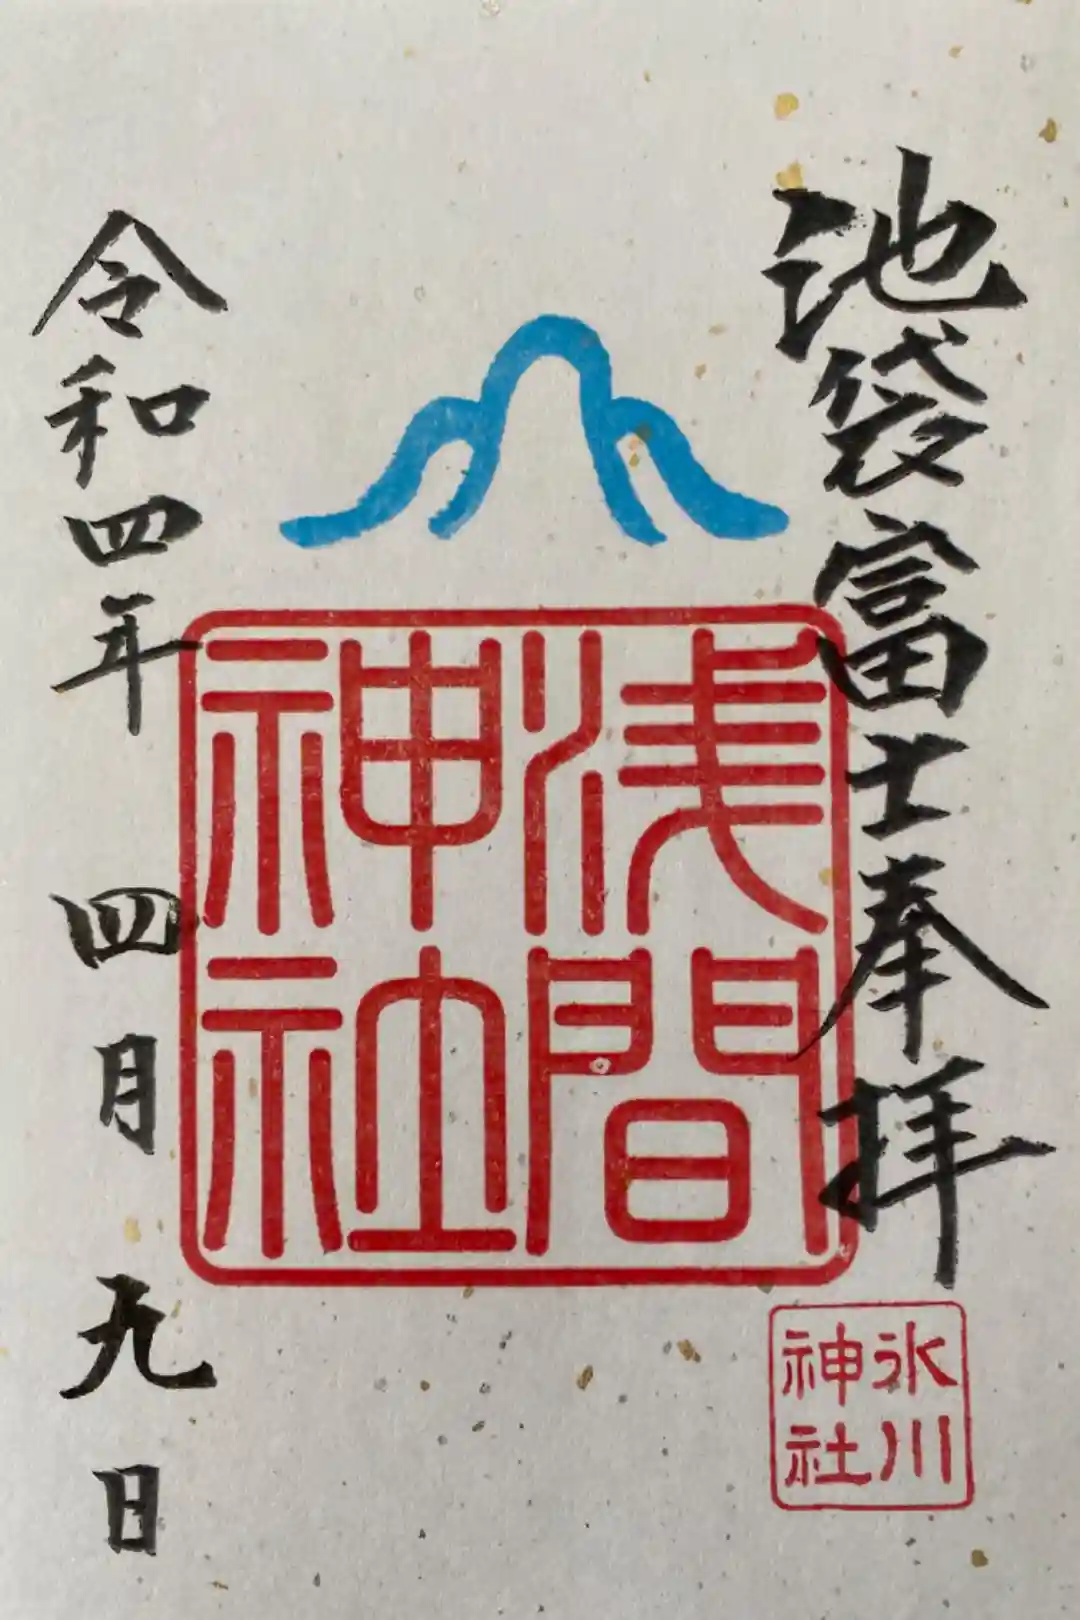 池袋富士奉拝
浅間
神社
氷川
神社
令和四年 四月九日